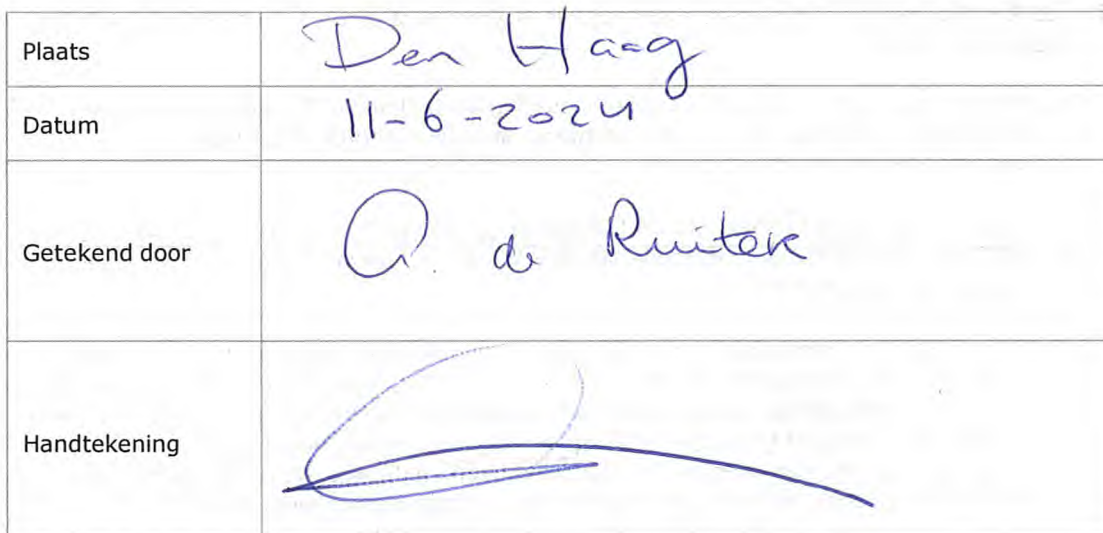 Plaats Den Haag
Datum 11-6-2024
Getekend door de Ruiter
Handtekening